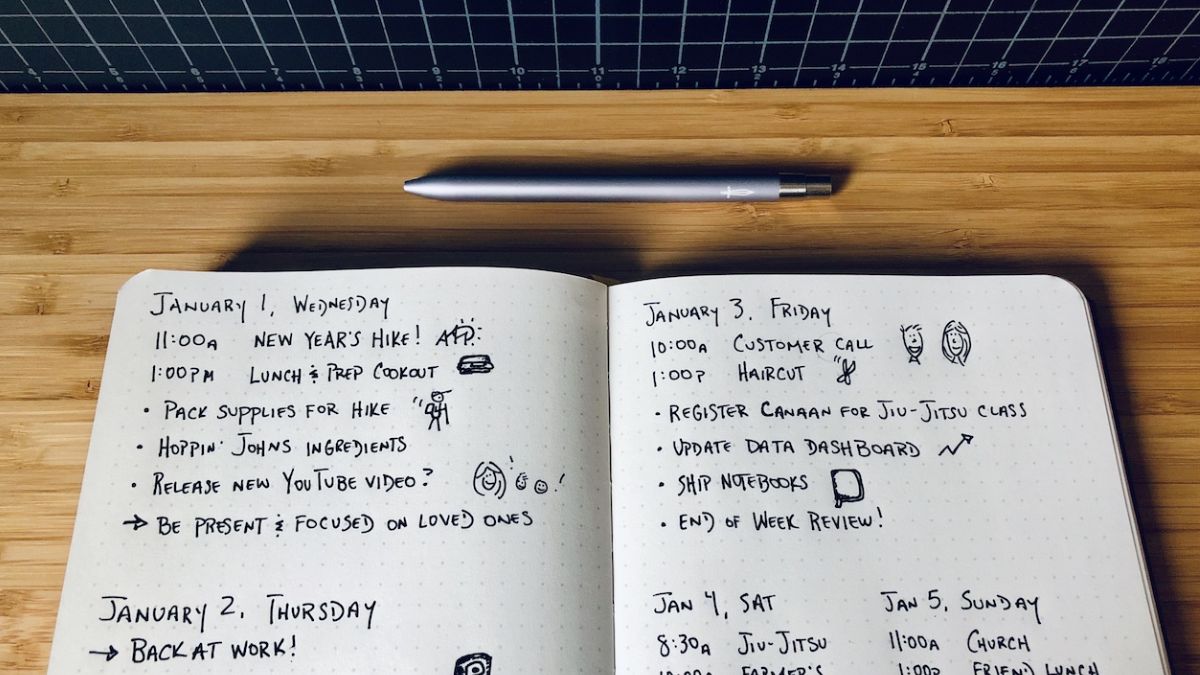 4 5 6 7 8 9 10 11 12 13 14 15 16 17 18
JANUARY 1, WEDNESDAY
11:00A NEW YEAR'S HIKE!
1:00PM LUNCH & PREP COOKOUT
• PACK SUPPLIES FOR HIKE
• HOPPIN' JOHNS INGREDIENTS
• RELEASE NEW YOUTUBE VIDEO?
→ BE PRESENT & FOCUSED ON LOVED ONES
JANUARY 2, THURSDAY
→ BACK AT WORK!
JANUARY 3, FRIDAY
10:00A CUSTOMER CALL
1:00P HAIRCUT
• REGISTER CANAAN FOR JIU-JITSU CLASS
• UPDATE DATA DASHBOARD
• SHIP NOTEBOOKS
• END OF WEEK REVIEW!
JAN 4, SAT
8:30A JIU-JITSU
FARMER'S
JAN 5, SUNDAY
11:00A CHURCH
1:00P FRIEND LUNCH